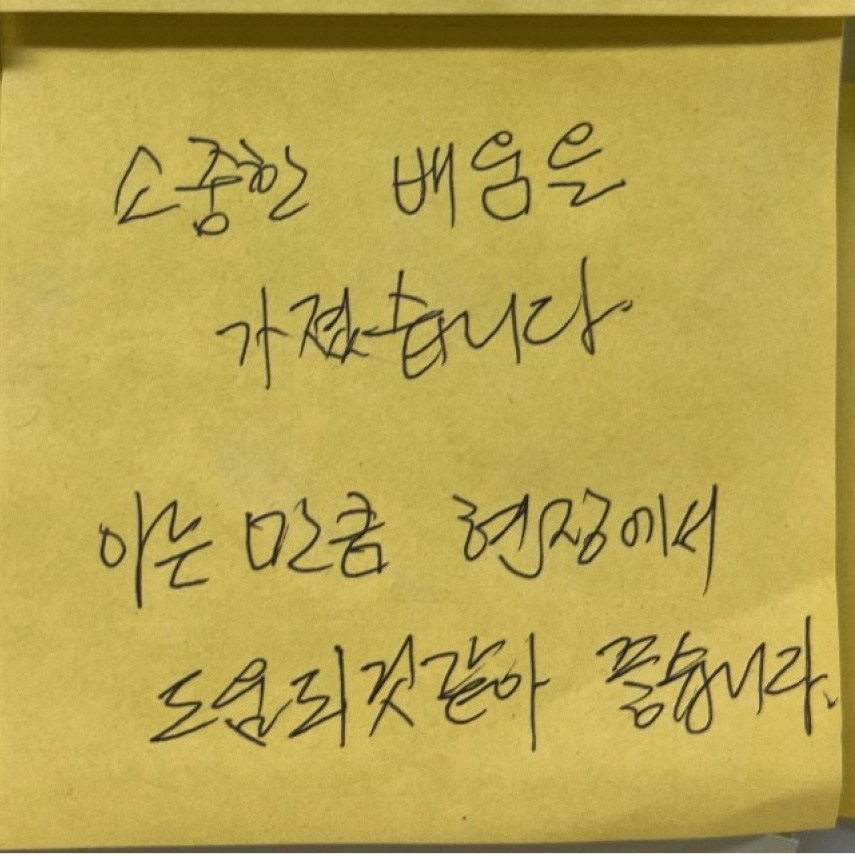 소중한 배움은
가졌습니다
아는 만큼 현장에서
도움되것같아 좋습니다.